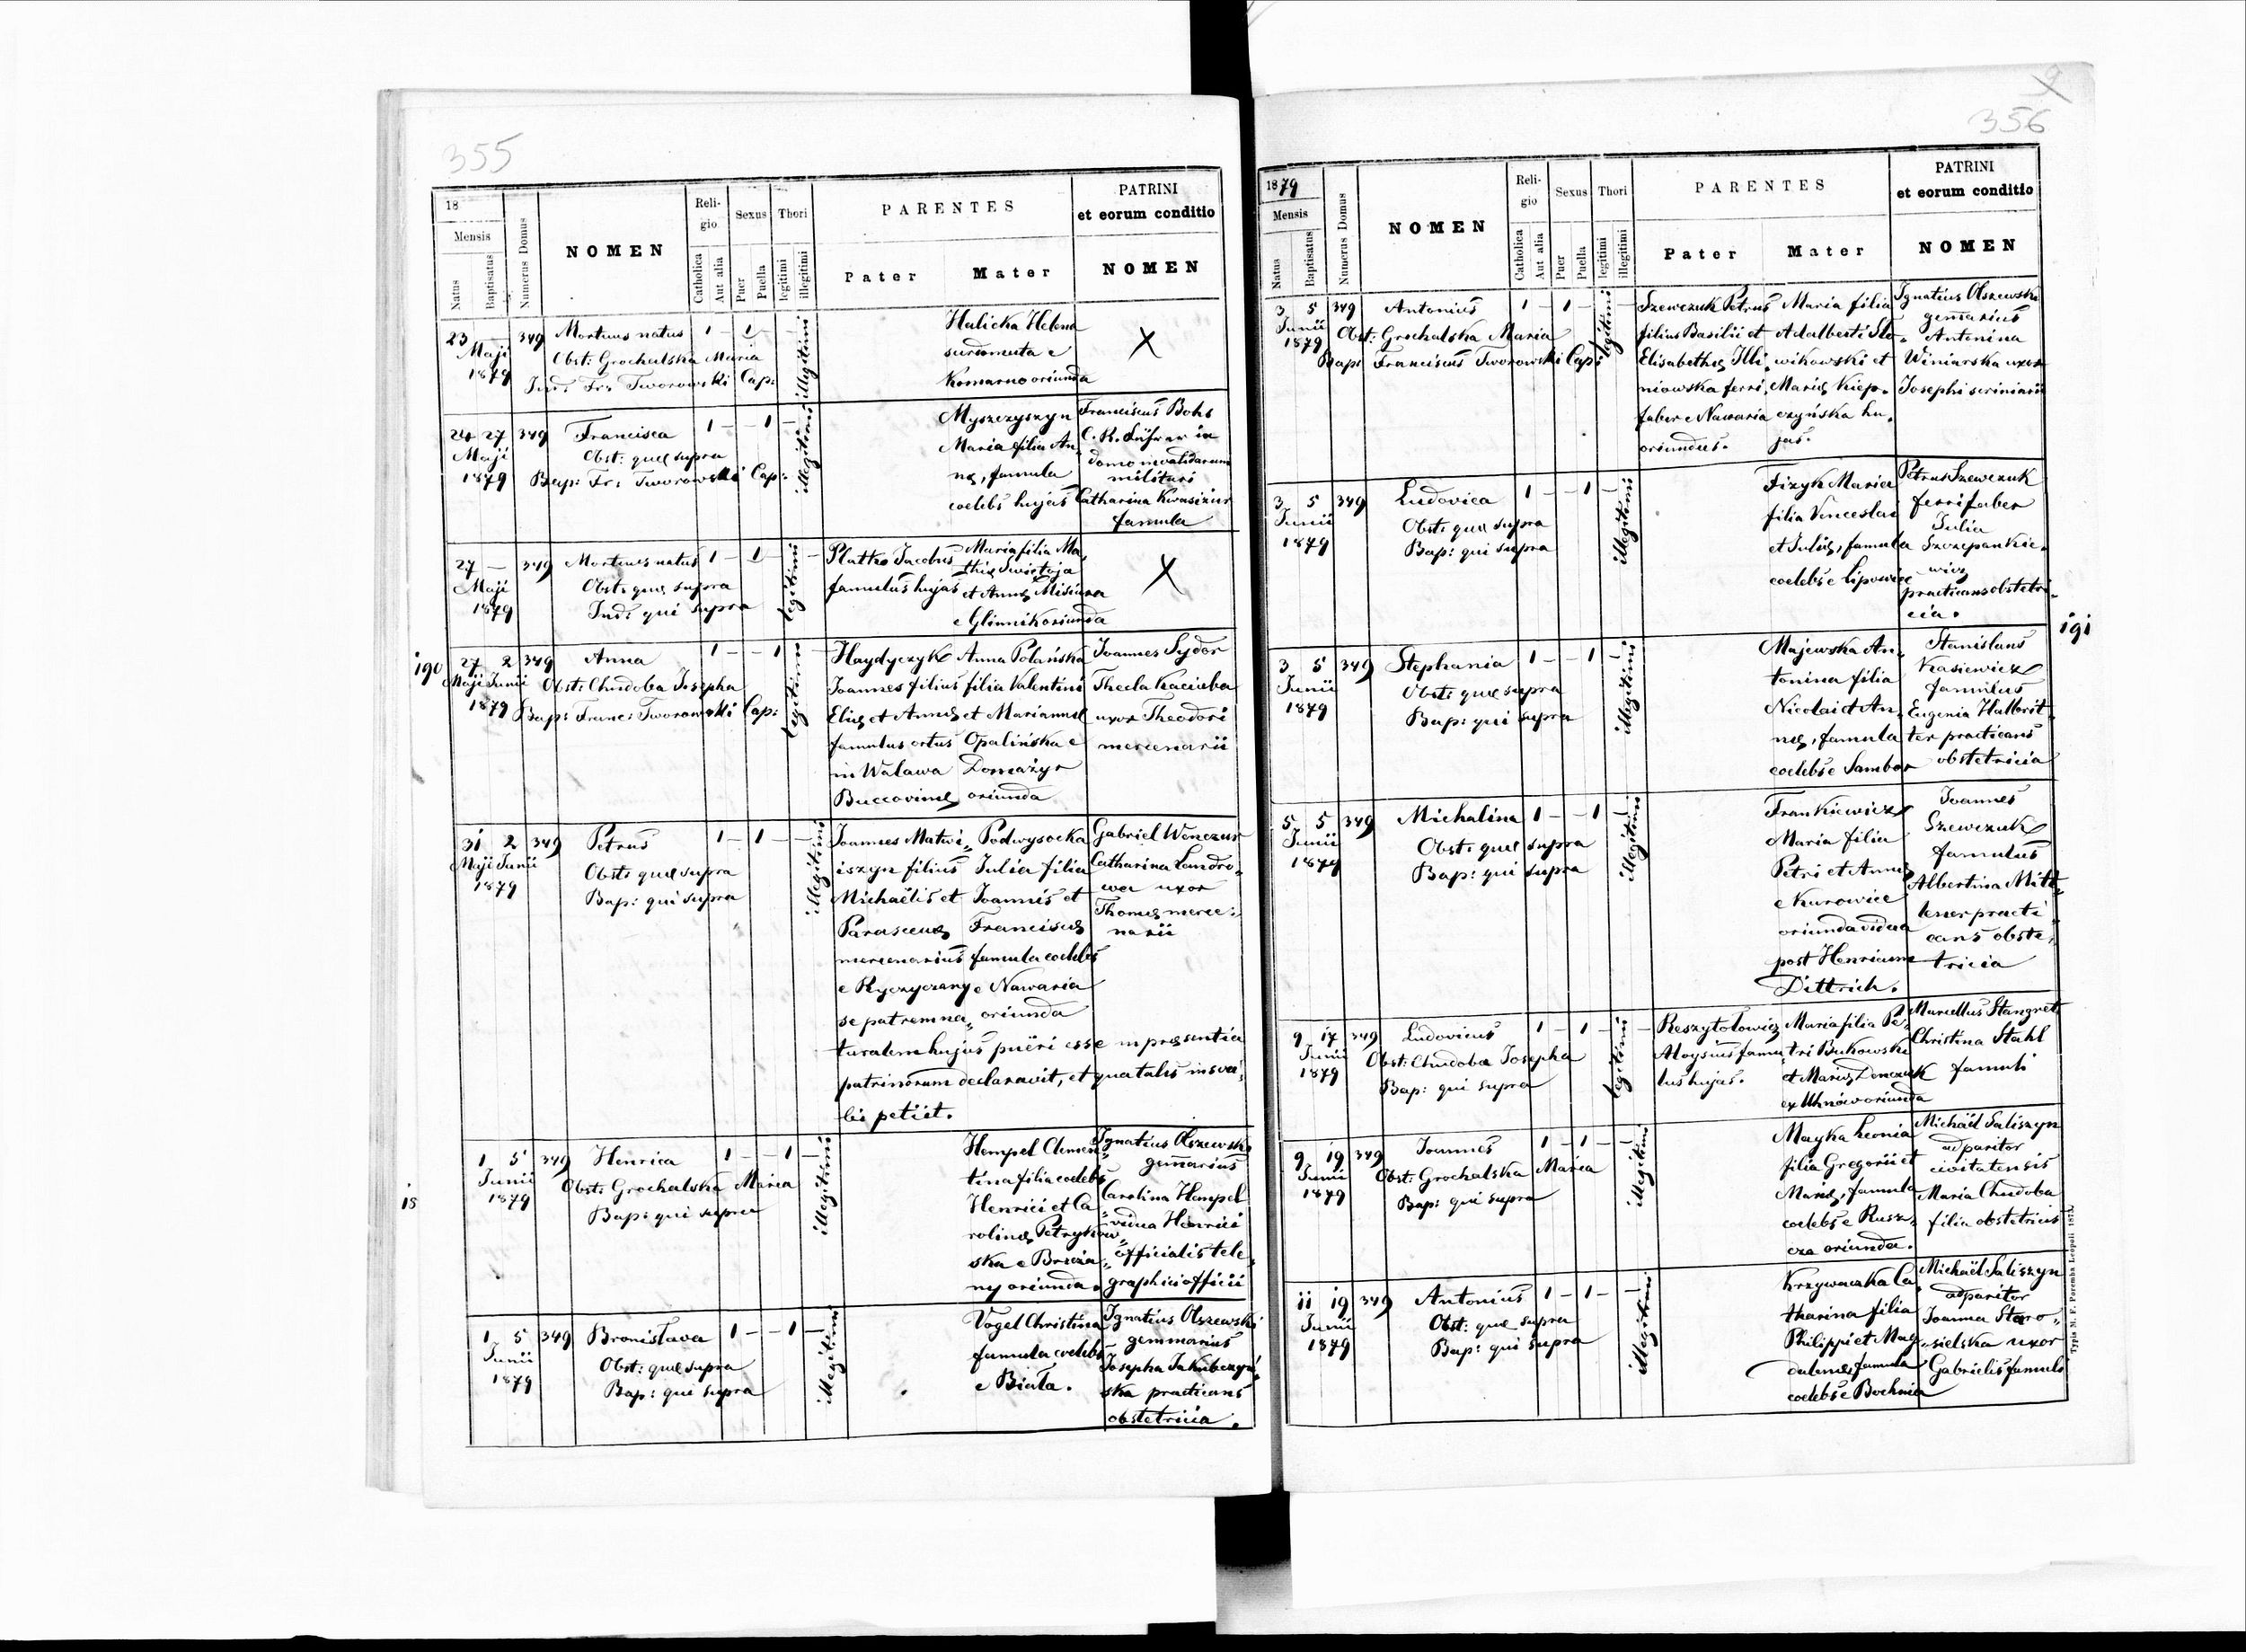 355
18
Mensis
Natus
Baptisatus
Numerus Domus
NOMEN
Reli-
gio
Catholica
Aut alia
Sexus
Puer
Puella
Thori
legitimi
illegitimi
PARENTES
Pater
Mater
PATRINI
et eorum conditio
NOMEN
23 —
Maji
1879
349
Mortuus natus
Obst: Grochalska Maria
Ind: Fr: Tworowski Cap:
1 — 1 — —
illegitimi
Halicka Helena
surdomuta e
Komarno oriunda
X
24 27
Maji
1879
349
Francisca
Obst: quae supra
Bap: Fr: Tworowski Cap:
1 — — 1 —
illegitimi
Myszczyszyn
Maria filia An
nae, famula
coelebs hujas
Franciscus Bohs
C. R. Führer in
domo invalidarum
militari
Catharina Kwasizur
famula
27 —
Maji
1879
349
Mortuus natus
Obst: quae supra
Ind: qui supra
1 — 1 —
legitimi
Platko Jacobus
famulus hujas
Maria filia Ma
thiae Swiętoja
et Annae Misiura
e Glinnik oriunda
X
190
27 2
Maji Junii
1879
349
Anna
Obst: Chudoba Josepha
Bap: Franc: Tworowski Cap:
1 — — 1
legitimi
Haydyczyk
Joannes filius
Eliae et Annae
famulus ortus
in Walawa
Buccovinae
Anna Polańska
filia Valentini
et Mariannae
Opalińska e
Domażyr
oriunda
Joannes Sydor
Thecla Kaciuba
uxor Theodori
mercenarii
31 2
Maji Junii
1879
349
Petrus
Obst: quae supra
Bap: qui supra
1 — 1 — —
illegitimi
Joannes Matwi„
iszyn filius
Michaëlis et
Parasceuae
mercenarius
e Ryczyczany
se patrem na„
Podwysocka
Julia filia
Joannis et
Franciscae
famula coelebs
e Nawaria
oriunda
turalem hujus puëri esse in praesentia
patrinorum declaravit, et qua talis inscri„
bi petiit.
Gabriel Wonczur
Catharina Landro„
wa uxor
Thomae merce„
narii
is
1 5
Junii
1879
349
Henrica
Obst: Grochalska Maria
Bap: qui supra
1 — — 1 —
illegitimi
Hempel Clemen„
tina filia coelebs
Henrici et Ca„
rolinae Petrykow„
ska e Brzeża„
ny oriunda.
Ignatius Olszewski
gemarius
Carolina Hempel
vidua Henrici
officialis tele„
graphici officii
1 5
Junii
1879
349
Bronisłava
Obst: quae supra
Bap: qui supra
1 — — 1 —
illegitimi
Vogel Christina
famula coelebs
e Biała.
Ignatius Olszewski
gemmarius
Josepha Jakubczyń„
ska practicans
obstetricia.
9
356
1879
Mensis
Natus
Baptisatus
Numerus Domus
NOMEN
Reli-
gio
Catholica
Aut alia
Sexus
Puer
Puella
Thori
legitimi
illegitimi
PARENTES
Pater
Mater
PATRINI
et eorum conditio
NOMEN
3 5
Junii
1879
349
Antonius
Obst: Grochalska Maria
Bap: Franciscus Tworowski Cap:
1 — 1 —
legitimi
Szewczuk Petrus
filius Basilii et
Elisabethae Illi„
niowska ferri„
faber e Nawaria
oriundus.
Maria filia
Adalberti Sło„
wikowski et
Mariae Kiep„
czyńska hu„
jas.
Ignatius Olszewski
gemarius
Antonina
Winiarska uxor
Josephi scriniarii
3 5
Junii
1879
349
Ludovica
Obst: quae supra
Bap: qui supra
1 — — 1 —
illegitimi
Fizyk Maria
filia Venceslai
et Juliae, famula
coelebs e Lipowiec
Petrus Szewczuk
ferrifaber
Julia
Szczepankie„
wicz
practicans obstetri„
cia.
191
3 5
Junii
1879
349
Stephania
Obst: quae supra
Bap: qui supra
1 — — 1 —
illegitimi
Majewska An„
tonina filia
Nicolai et An„
nae, famula
coelebs e Sambor
Stanislaus
Krasiewicz
famulus
Eugenia Halbrit„
ter practicans
obstetricia
5 5
Junii
1879
349
Michalina
Obst: quae supra
Bap: qui supra
1 — — 1 —
illegitimi
Frankiewicz
Maria filia
Petri et Annae
e Kurowice
oriunda vidua
post Henricum
Dittrich.
Joannes
Szewczuk
famulus
Albertina Mitt„
lener practi„
cans obste„
tricia
9 17
Junii
1879
349
Ludovicus
Obst: Chudoba Josepha
Bap: qui supra
1 — 1 — —
legitimi
Reszytołowicz
Aloysius famu„
lus hujas.
Maria filia Pe„
tri Bukowski
et Mariae Demczuk
ex Uhnów oriunda
Marcellus Stangret
Christina Stahl
famuli
9 19
Junii
1879
349
Joannes
Obst: Grochalska Maria
Bap: qui supra
1 — 1 — —
illegitimi
Mayka Leonia
filia Gregorii et
Mariae, famula
coelebs e Rusz„
cza oriunda.
Michaël Saliszyn
adparitor
civitatensis
Maria Chudoba
filia obstetricis
11 19
Junii
1879
349
Antonius
Obst: quae supra
Bap: qui supra
1 — 1 — —
illegitimi
Krzywaczka Ca„
tharina filia
Philippi et Mag„
dalenae, famula
coelebs e Bochnia
Michaël Saliszyn
adparitor
Joanna Staro„
sielska uxor
Gabrielis famuli
Typis M. F. Poremba Leopoli 1873.